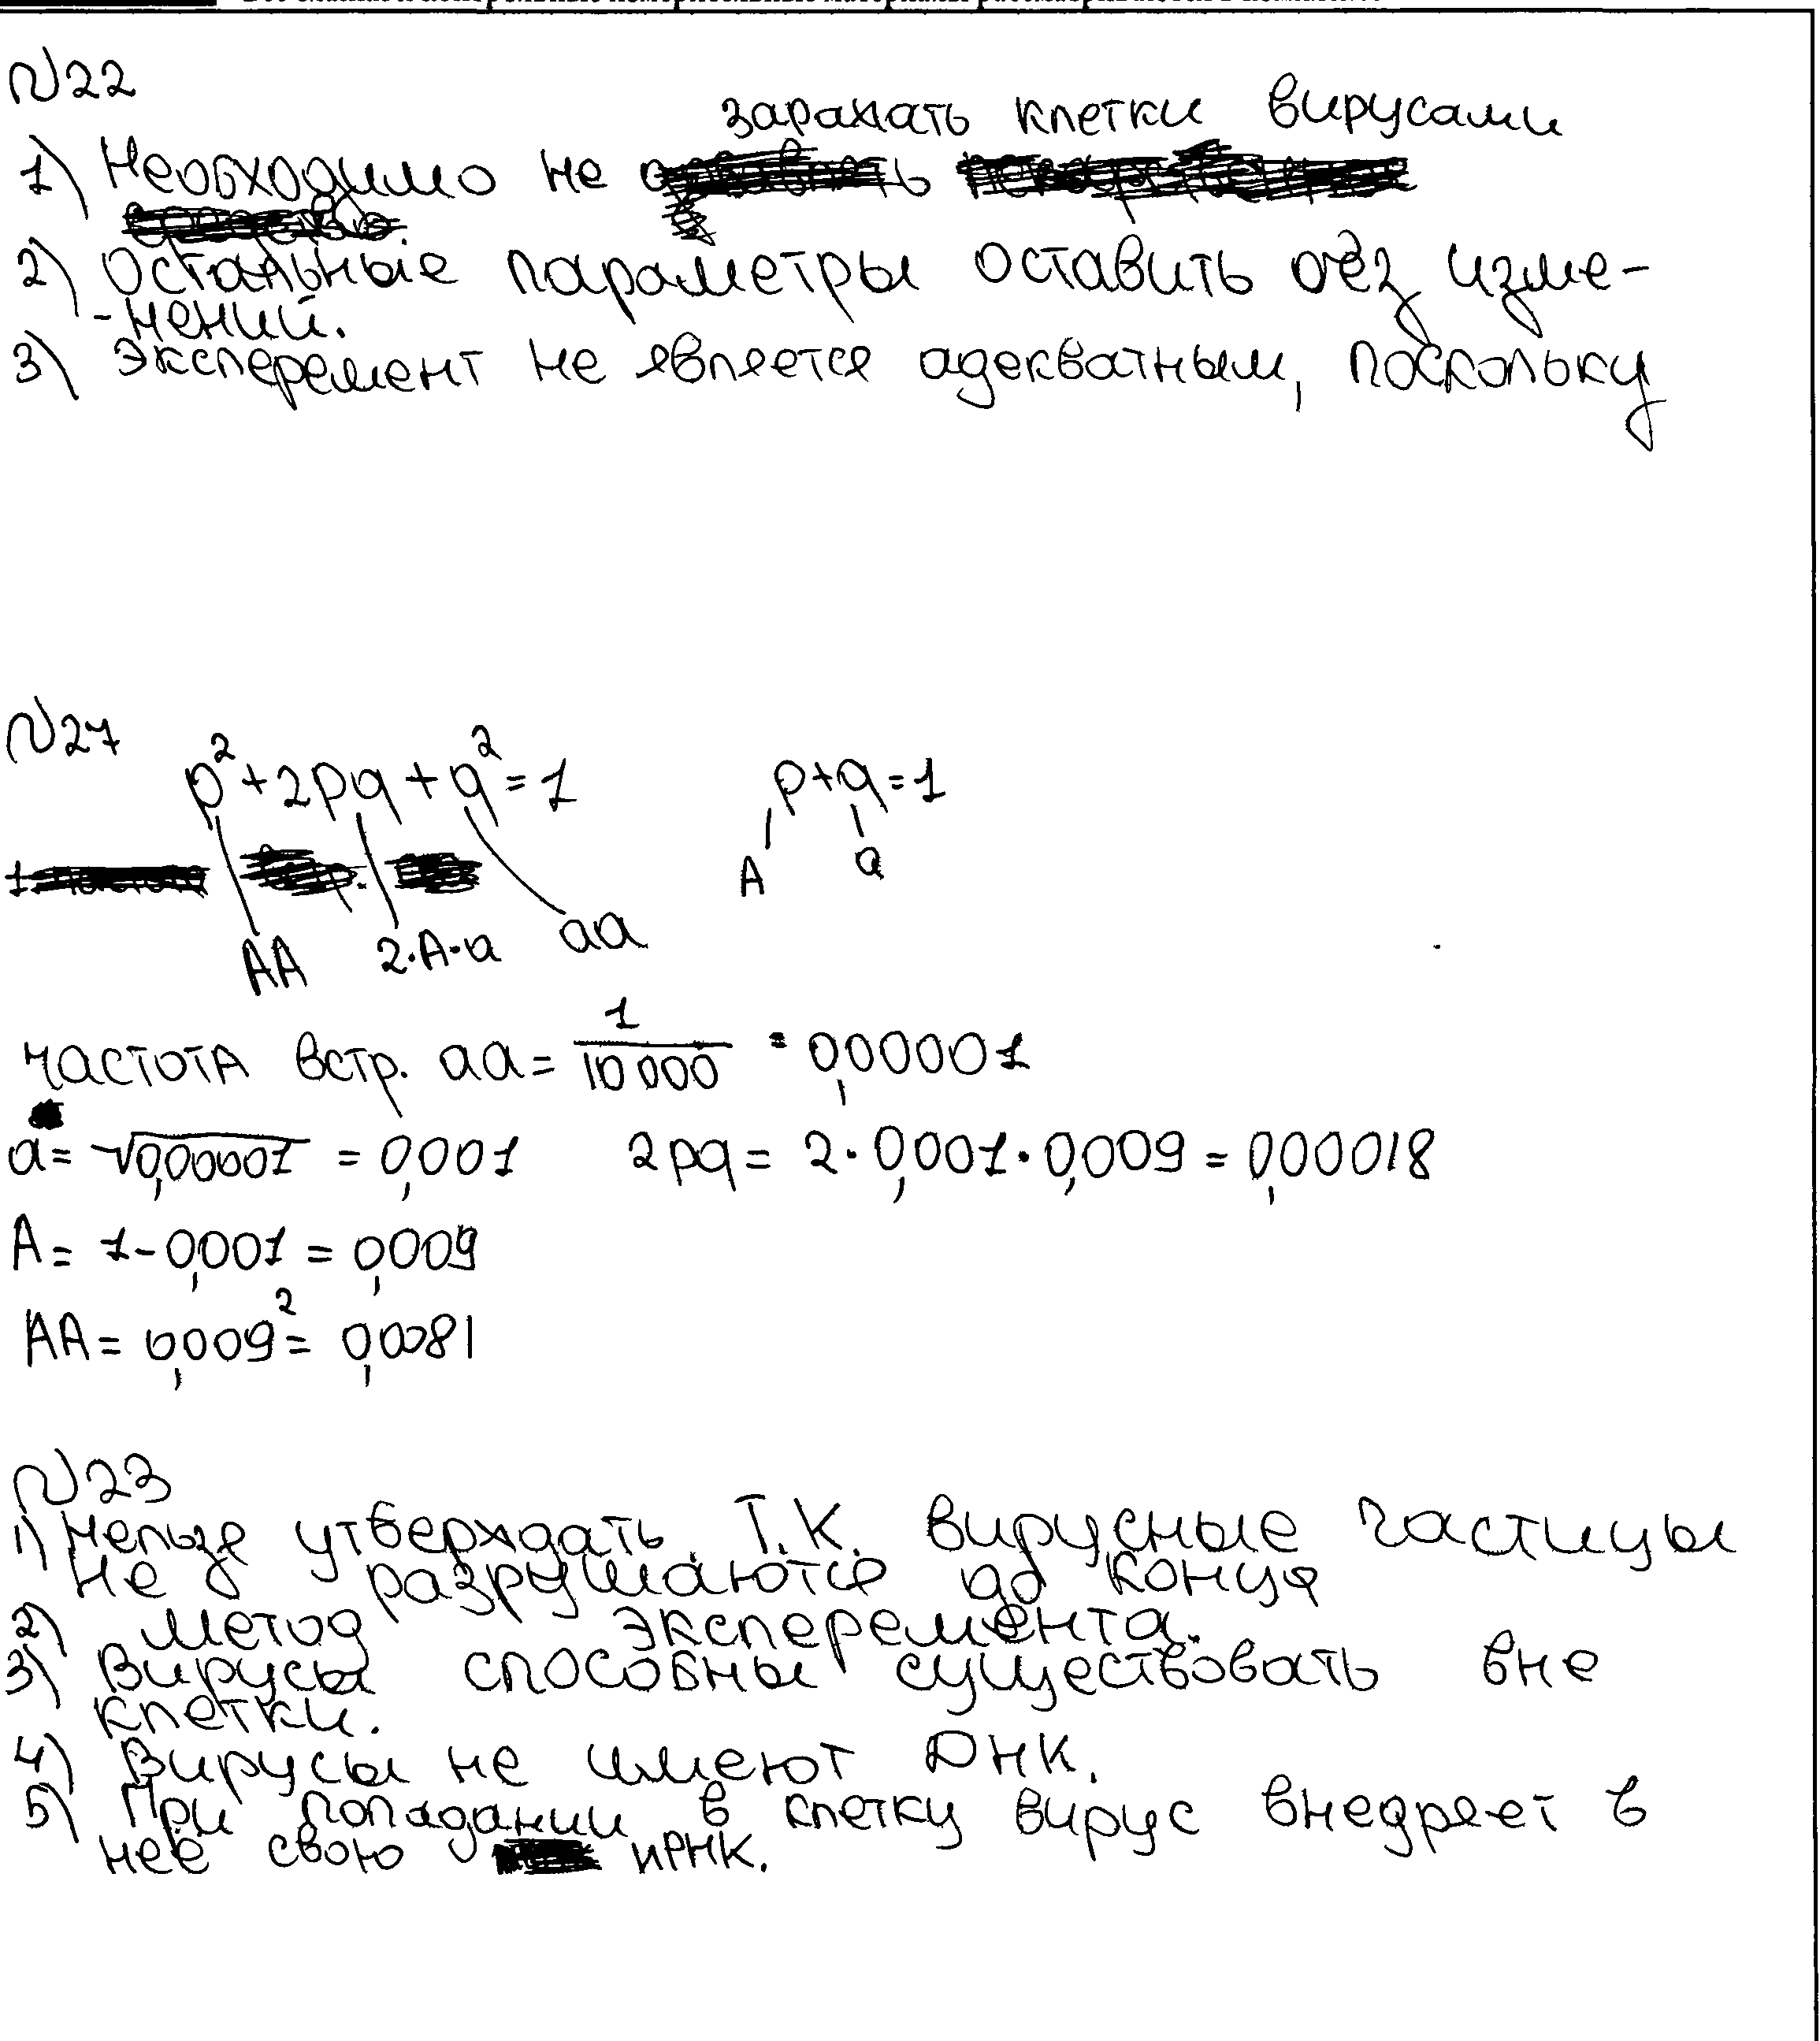 №22
заражать клетки вирусами
1) Необходимо не
2) Остальные параметры оставить без изме-
-нений.
3) Эксперемент не является адекватным, поскольку
№27
p²+2pq+q²=1 p+q=1
A a
AA 2·A·a aa
частота встр. aa= 1/10000 = 0,00001
a= √0,00001 = 0,001 2pq= 2·0,001·0,009=0,00018
A= 1-0,001 = 0,009
AA= 0,009²= 0,0081
№23
1) Нельзя утверждать. Т.К. вирусные частицы
не разрушаются до конца
2) метод эксперемента.
3) Вирусы способны существовать вне
клетки.
4) Вирусы не имеют ДНК.
5) При попадании в клетку вирус внедряет в
неё свою иРНК.